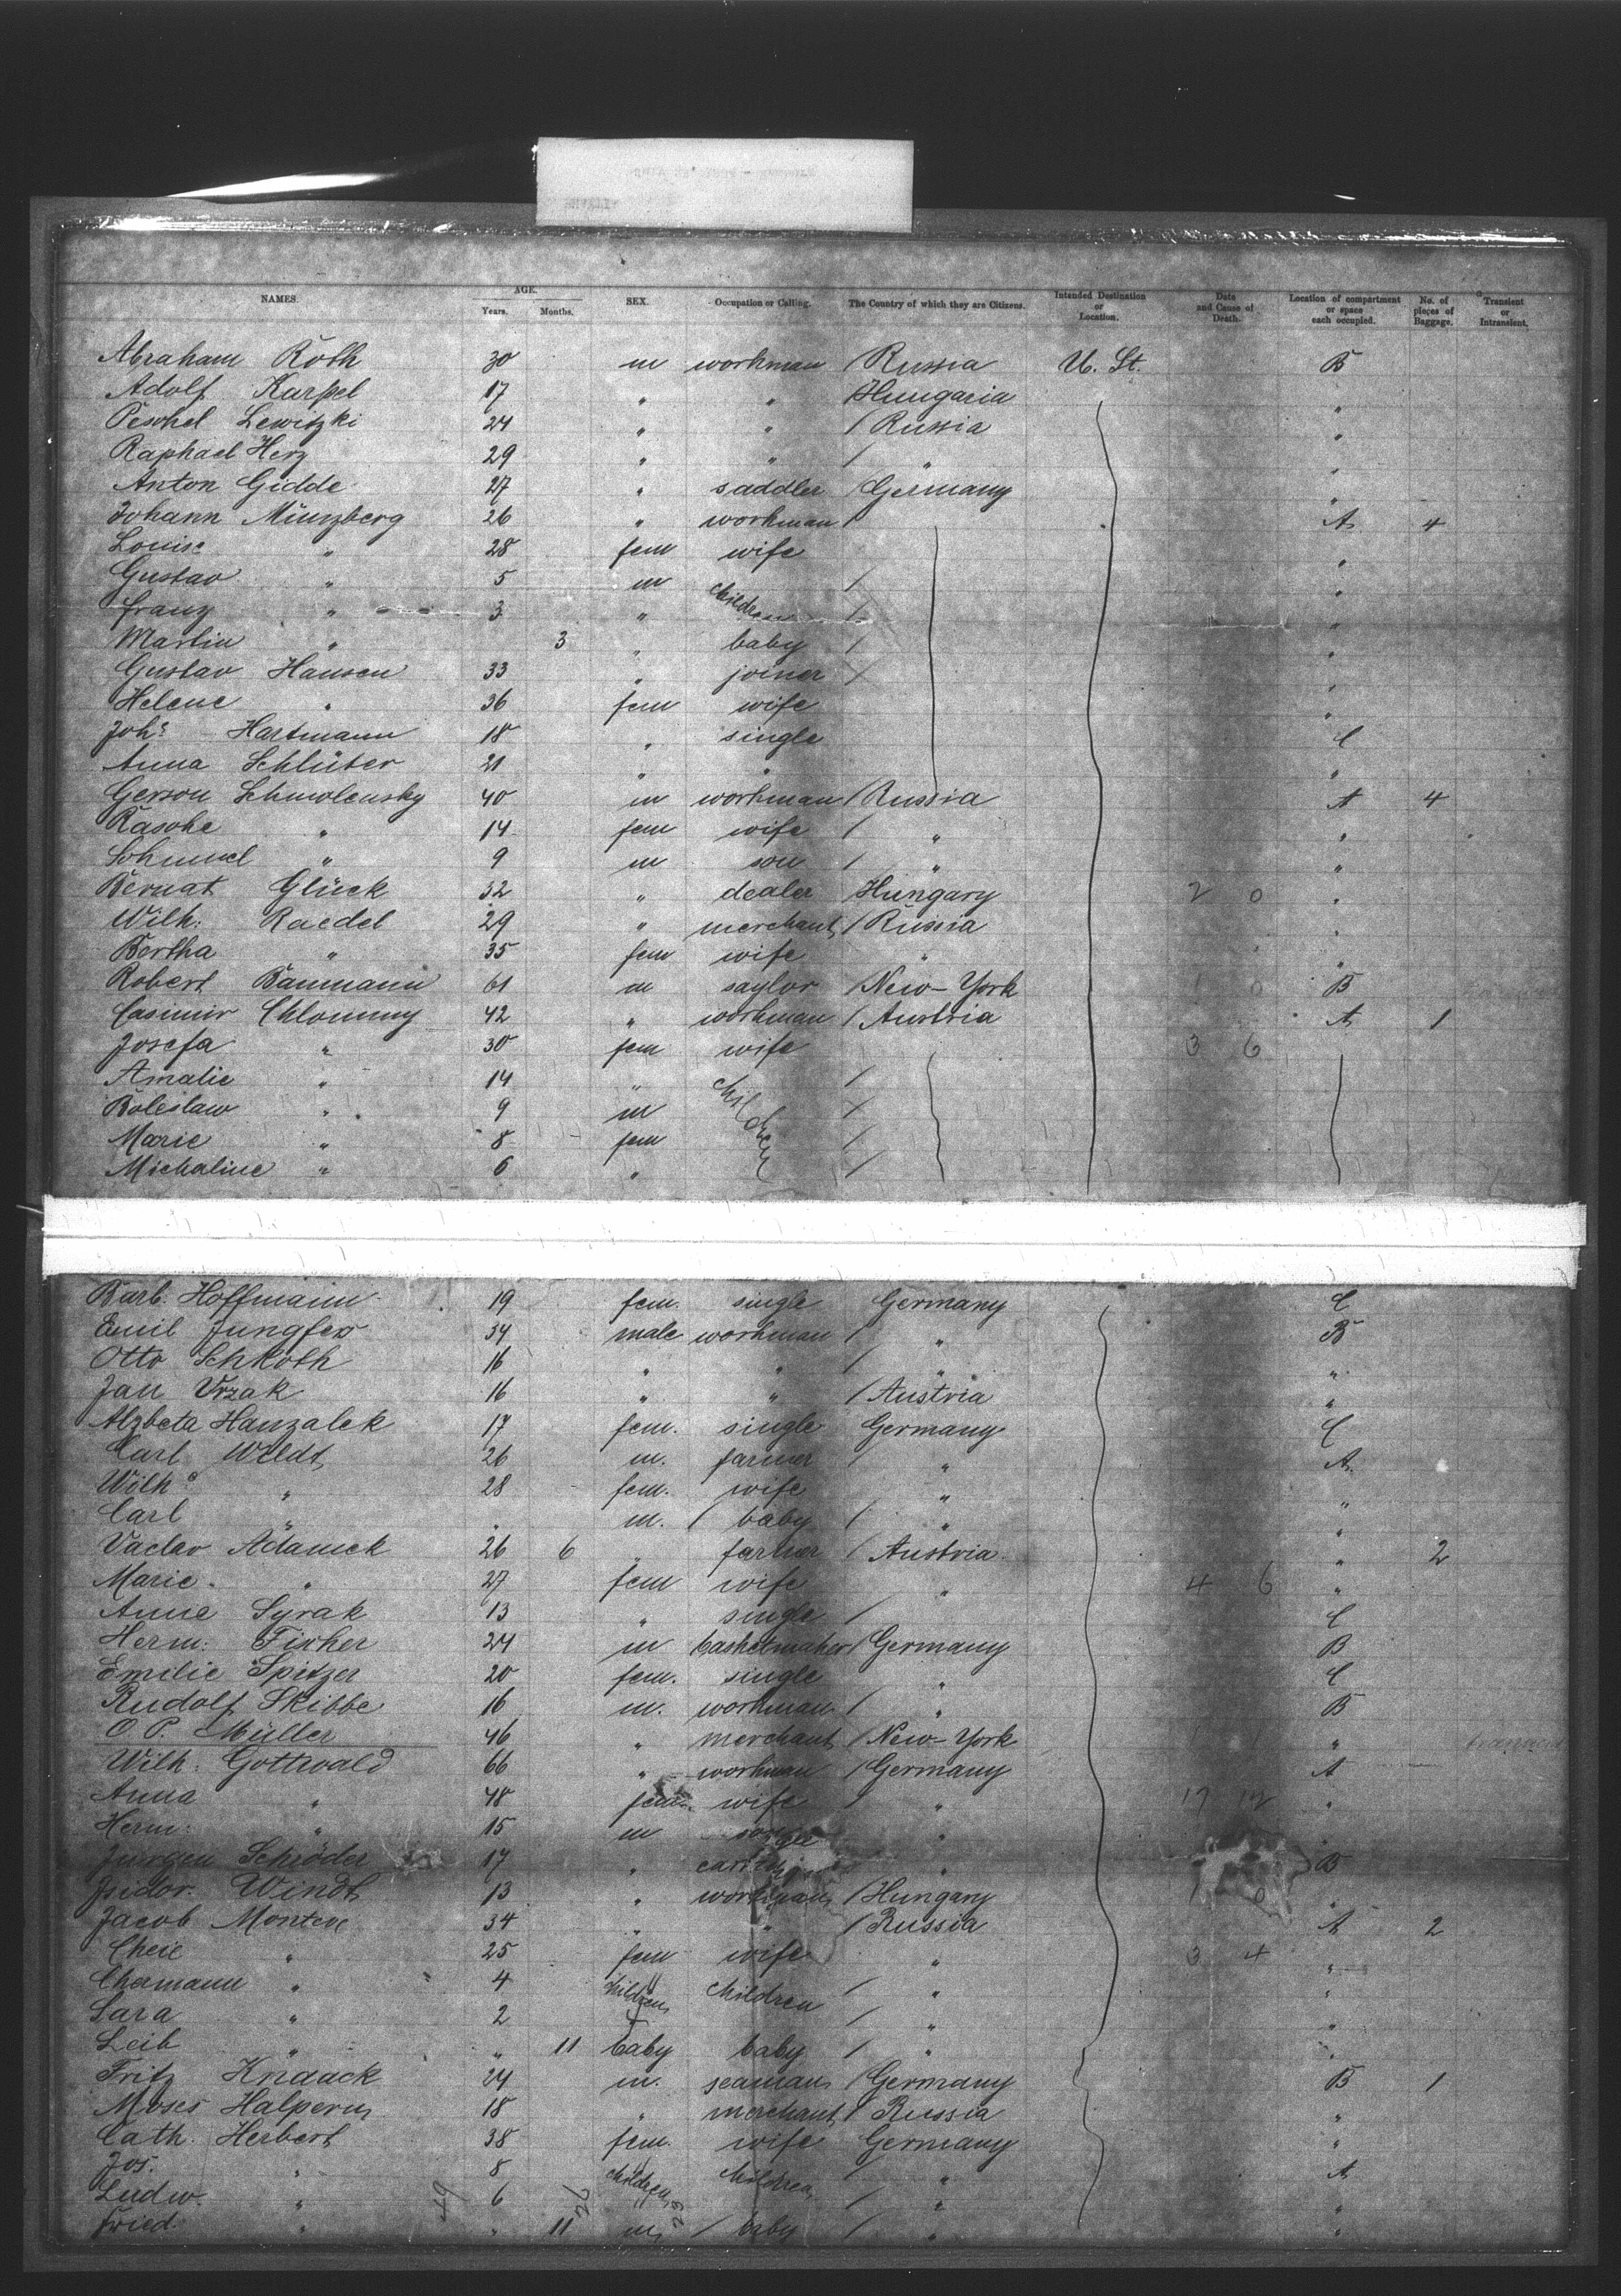 NAMES. AGE. Years. Months. SEX. Occupation or Calling. The Country of which they are Citizens. Intended Destination or Location. Date and Cause of Death. Location of compartment or space each occupied. No. of pieces of Baggage. Transient or Intransient.
Abraham Roth 30 m workman / Russia U. St. B
Adolf Karpel 17 " " Hungaria "
Peschel Lewitzki 24 " " / Russia "
Raphael Herz 29 " " / " "
Anton Gidde 27 " saddler / Germany "
Johann Münzberg 26 " workman / A 4
Louise " 28 fem wife "
Gustav " 5 m children / "
Franz " 3 " / "
Martin " 3 " baby / "
Gustav Hansen 33 " joiner / "
Helene " 36 fem wife "
Joh.e Hartmann 18 " single C
Anna Schlüter 21 " " "
Gerson Schmolensky 40 m workman / Russia A 4
Rasche " 14 fem wife / " "
Schmuel " 9 m son / " "
Bernat Glück 32 " dealer Hungary 2 0 "
Wilh: Raedel 29 " merchant / Russia "
Bertha " 35 fem wife " "
Robert Baumann 61 m saylor / New-York 1 0 B
Casimir Chlommy 42 " workman / Austria A 1
Josefa " 30 fem wife 3 6
Amalie " 14 " children /
Boleslaw " 9 m /
Marie " 8 fem /
Michaline " 6 " /
Barb. Hoffmann 19 fem. single Germany C
Emil Jungfer 34 male workman / " B
Otto Schkoth 16 " " / " "
Jan Vrzak 16 " " / Austria "
Alzbeta Hanzalek 17 fem. single Germany C
Carl Weldt 26 m. farmer / " A
Wilh.e " 28 fem. wife " "
Carl " " m. / baby / " "
Vaclav Adamek 26 6 " farmer / Austria " 2
Marie " 27 fem wife " 4 6 "
Anna Syrak 13 " single / C
Herm: Fisher 24 m basketmaker / Germany B
Emilie Spitzer 20 fem. single " C
Rudolf Skibbe 16 m. workman / " B
O. P. Müller 46 " merchant / New-York " transient
Wilh: Gottwald 66 " workman / Germany A
Anna " 48 fem. wife / " 17 "
Herm: " 15 m son " "
Jurgen Schröder 17 " " B
Isidor Windt 13 " workman / Hungary 1 0 "
Jacob Montex 34 " " / Russia A 2
Cheie " 25 fem wife " 3 4 "
Chermann " 4 children children / " "
Sara " 2 / " "
Leib " " 11 baby baby / " "
Fritz Knaack 24 m. seaman / Germany B 1
Moses Halpern 18 " merchant / Russia "
Cath. Herbert 38 fem. wife Germany "
Jos. " 8 children children / " A
Ludw. " 6 / " "
Fried. " " 11 m / baby / " "
49 26 23